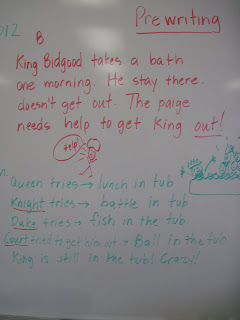 012
Prewriting
B
King Bidgood takes a bath
one morning. He stay there.
doesn't get out. The paige
needs help to get King out!
Help
Queen tries → lunch in tub
Knight tries → battle in tub
Duke tries → fish in the tub.
Court tried to get him out → Ball in the tub
King is still in the tub! Crazy!